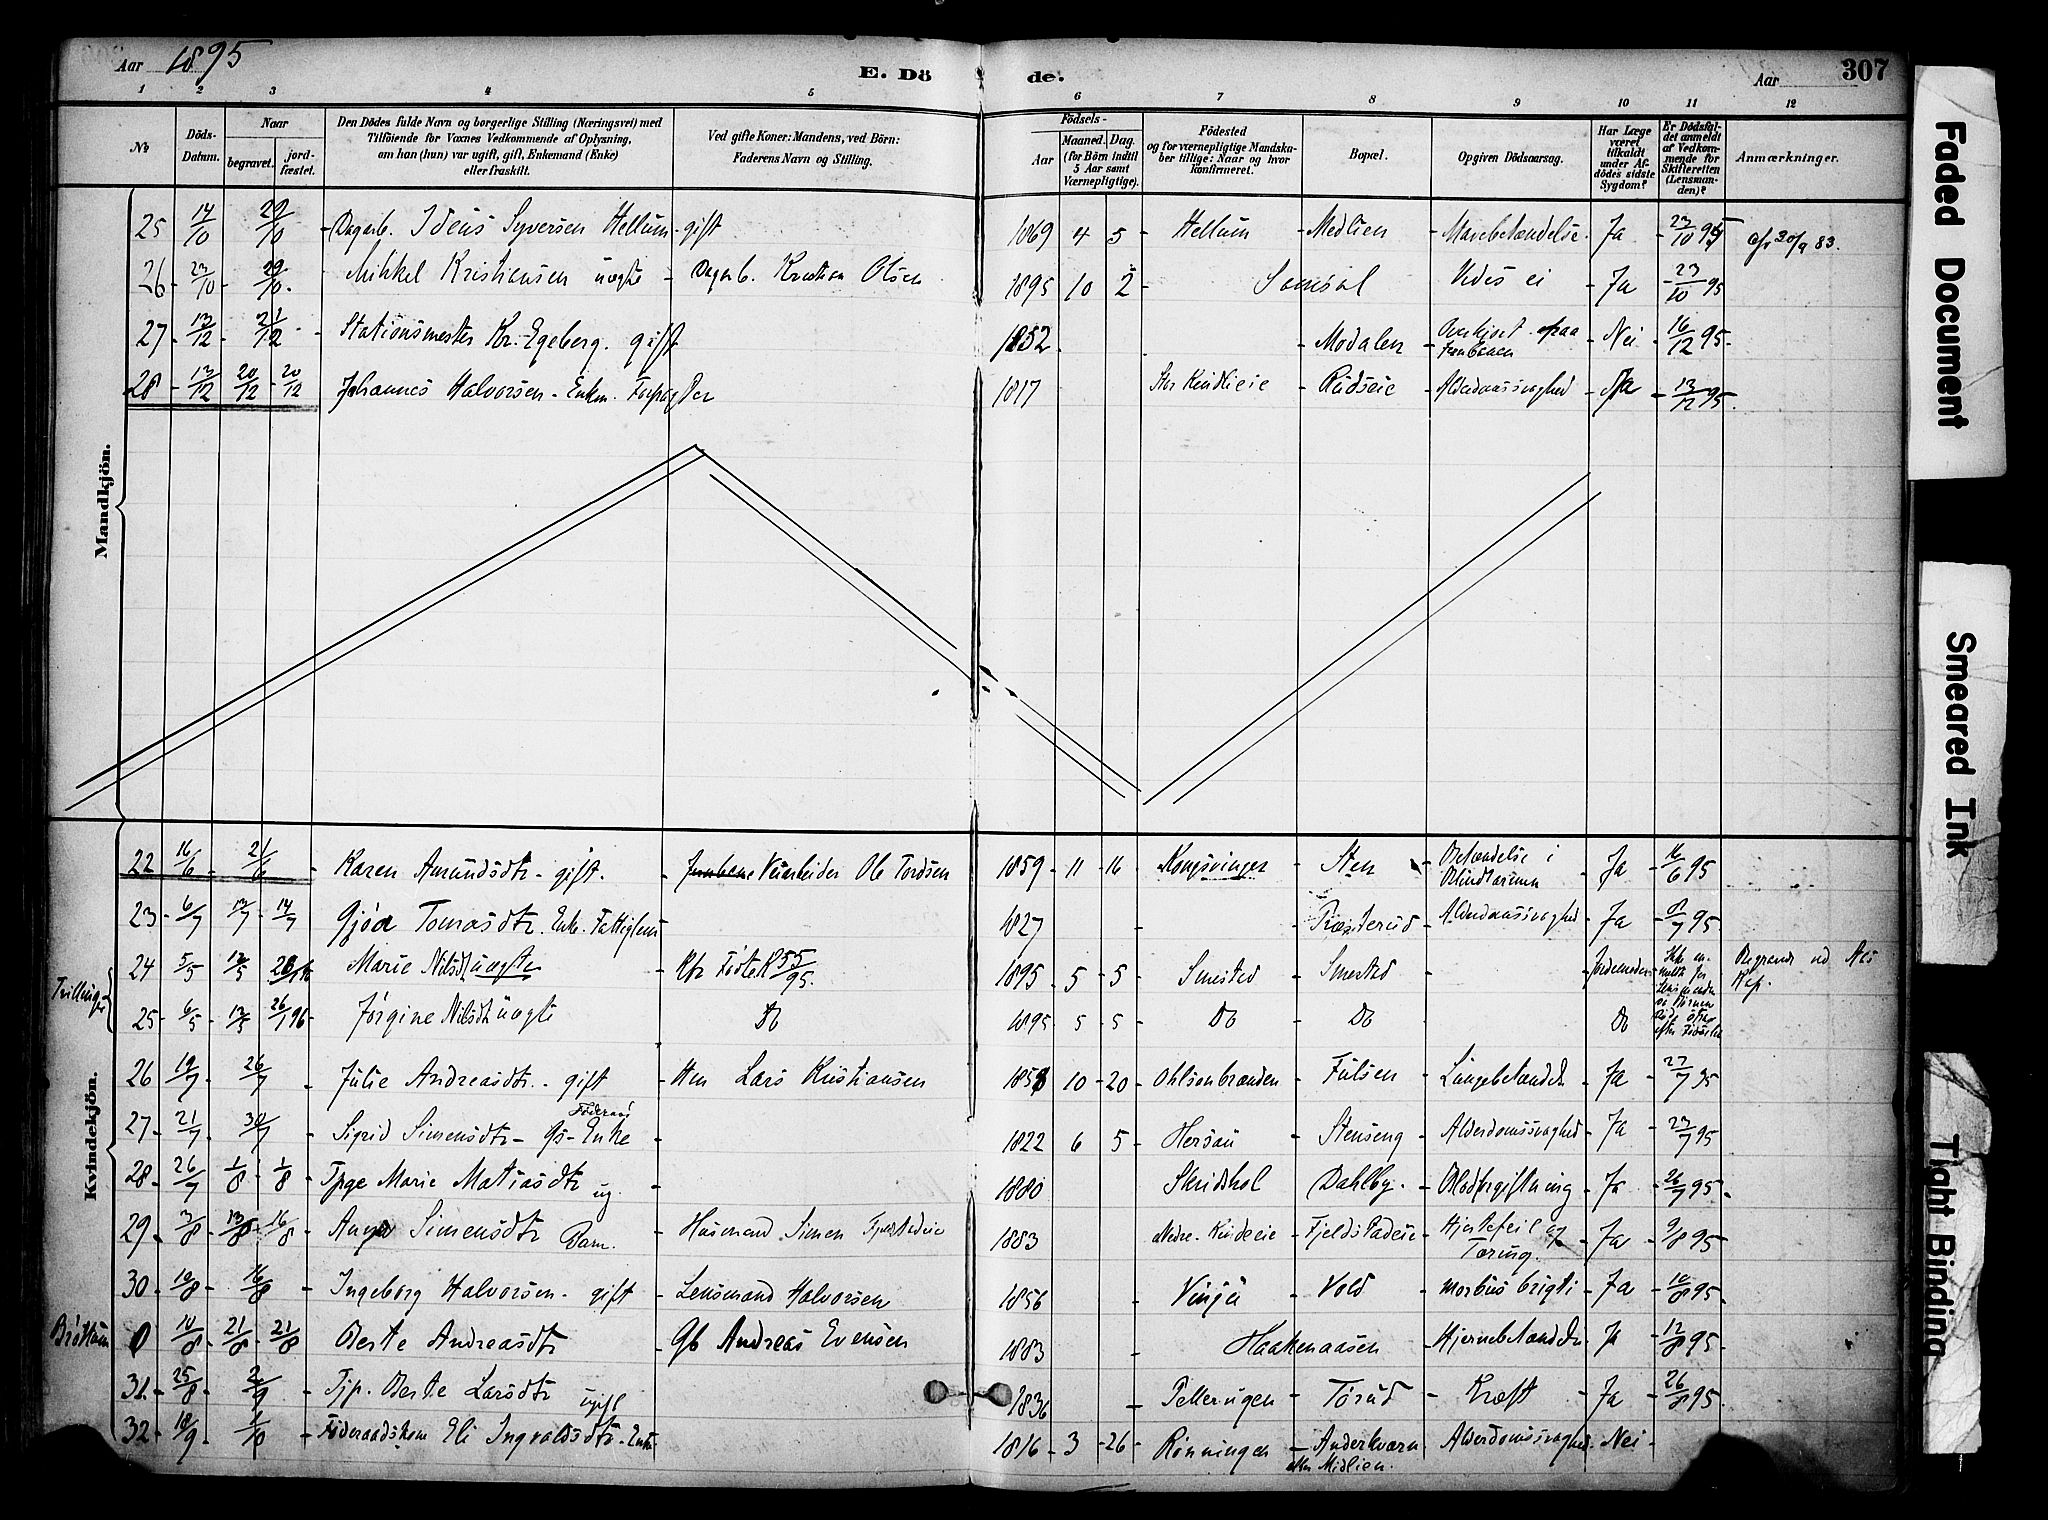 Aar 1895
E. Döde.
Aar
307
1 2 3 4 5 6 7 8 9 10 11 12
No
Döds-Datum.
Naar
begravet.
jord-fæstet.
Den Dödes fulde Navn og borgerlige Stilling (Næringsvei) med
Tilföiende for Voxnes Vedkommende af Oplysning,
om han (hun) var ugift, gift, Enkemand (Enke)
eller fraskilt.
Ved gifte Koner: Mandens, ved Börn:
Faderens Navn og Stilling.
Födsels-
Aar
Maaned. Dag.
(for Börn indtil
5 Aar samt
Værnepligtige).
Födested
og for værnepligtige Mandska-
ber tillige: Naar og hvor
konfirmeret.
Bopæl.
Opgiven Dödsaarsag.
Har Læge
været
tilkaldt
under Af-
dödes sidste
Sygdom?
Er Dödsfal-
det anmeldt
af Vedkom-
mende for
Skifteretten
(Lensman-
den)?
Anmærkninger.
Mandkjön.
25 14/10 20/10 Dagarb. Ideus Syversen Hellum gift 1869 4 5 Hellum Medlien Mavebetændelse Ja 23/10 95 30/9 83.
26 23/10 29/10 Mihkel Kristiansen uægte Dagarb. Kristian Olsen 1895 10 2 Samsal Vides ei Ja 23/10 95
27 13/12 21/12 Stationsmester Kr. Egeberg. gift 1852 Modalen Overkjørt paa Jernbanen Nei 16/12 95
28 13/12 20/12 20/12 Johannes Halvorsen Enkm. Forpagter 1817 Rudseie Alderdomssvaghed Ja 13/12 95
Kvindekjön.
22 16/6 21/6 Karen Amundsdtr gift. Ole Tordsen 1859 11 16 Kongsvinger Sten Betændelse i Blindtarmen Ja 16/6 95
23 6/7 13/7 14/7 Gjøa Tomasdtr. Enke. Fattiglem 1827 Præsterud Alderdomssvaghed Ja 8/7 95
Trillinger
24 5/5 12/5 Marie Nilsdtr uægte 1895 5 5 Smestad Smestad Jordemoder Begravet ved Nes Kap.
25 6/5 12/5 26/1 96 Jørgine Nilsdtr uægte Do 1895 5 5 Do Do Do
26 19/7 26/7 Julie Andreasdtr. gift Hm Lars Kristiansen 1858 10 20 Ohlsenbrænden Fulsen Lungebetændels Ja 22/7 95
27 21/7 30/7 Sigrid Simensdtr Gs Enke 1822 6 5 Hersau Stenseng Alderdomssvaghed Ja 23/7 95
28 26/7 1/8 1/8 Tpge Marie Matiasdtr ug. 1880 Skridshol Dahlby. Blodforgiftning Ja 26/7 95
29 3/8 13/8 16/8 Anna Simensdtr Barn. Husmand Simen Fjeldstadeie 1883 Nedre Kindeeie Fjeldstadeie Hjertefeil og Tæring. Ja 9/8 95
30 10/8 16/8 Ingeborg Halvorsen gift Lensmand Halvorsen 1856 Vinju Vold Morbus brigti Ja 10/8 95
Brøttum
0 10/8 21/8 21/8 Berte Andreasdtr Gb Andreas Evensen 1883 Haakenaasen Hjernebetændelse Ja 12/8 95
31 25/8 2/9 Tjp. Berte Larsdtr ugift 1836 Pellerugen Tørud Kræft Ja 26/8 95
32 18/9 1/10 Føderaadskone Eli Ingvaldsdtr. Enke 1816 3 26 Rønningen Anderkværn eller Midlien. Alderdomssvaghed Nei
Faded Document
Smeared Ink
Tight Binding